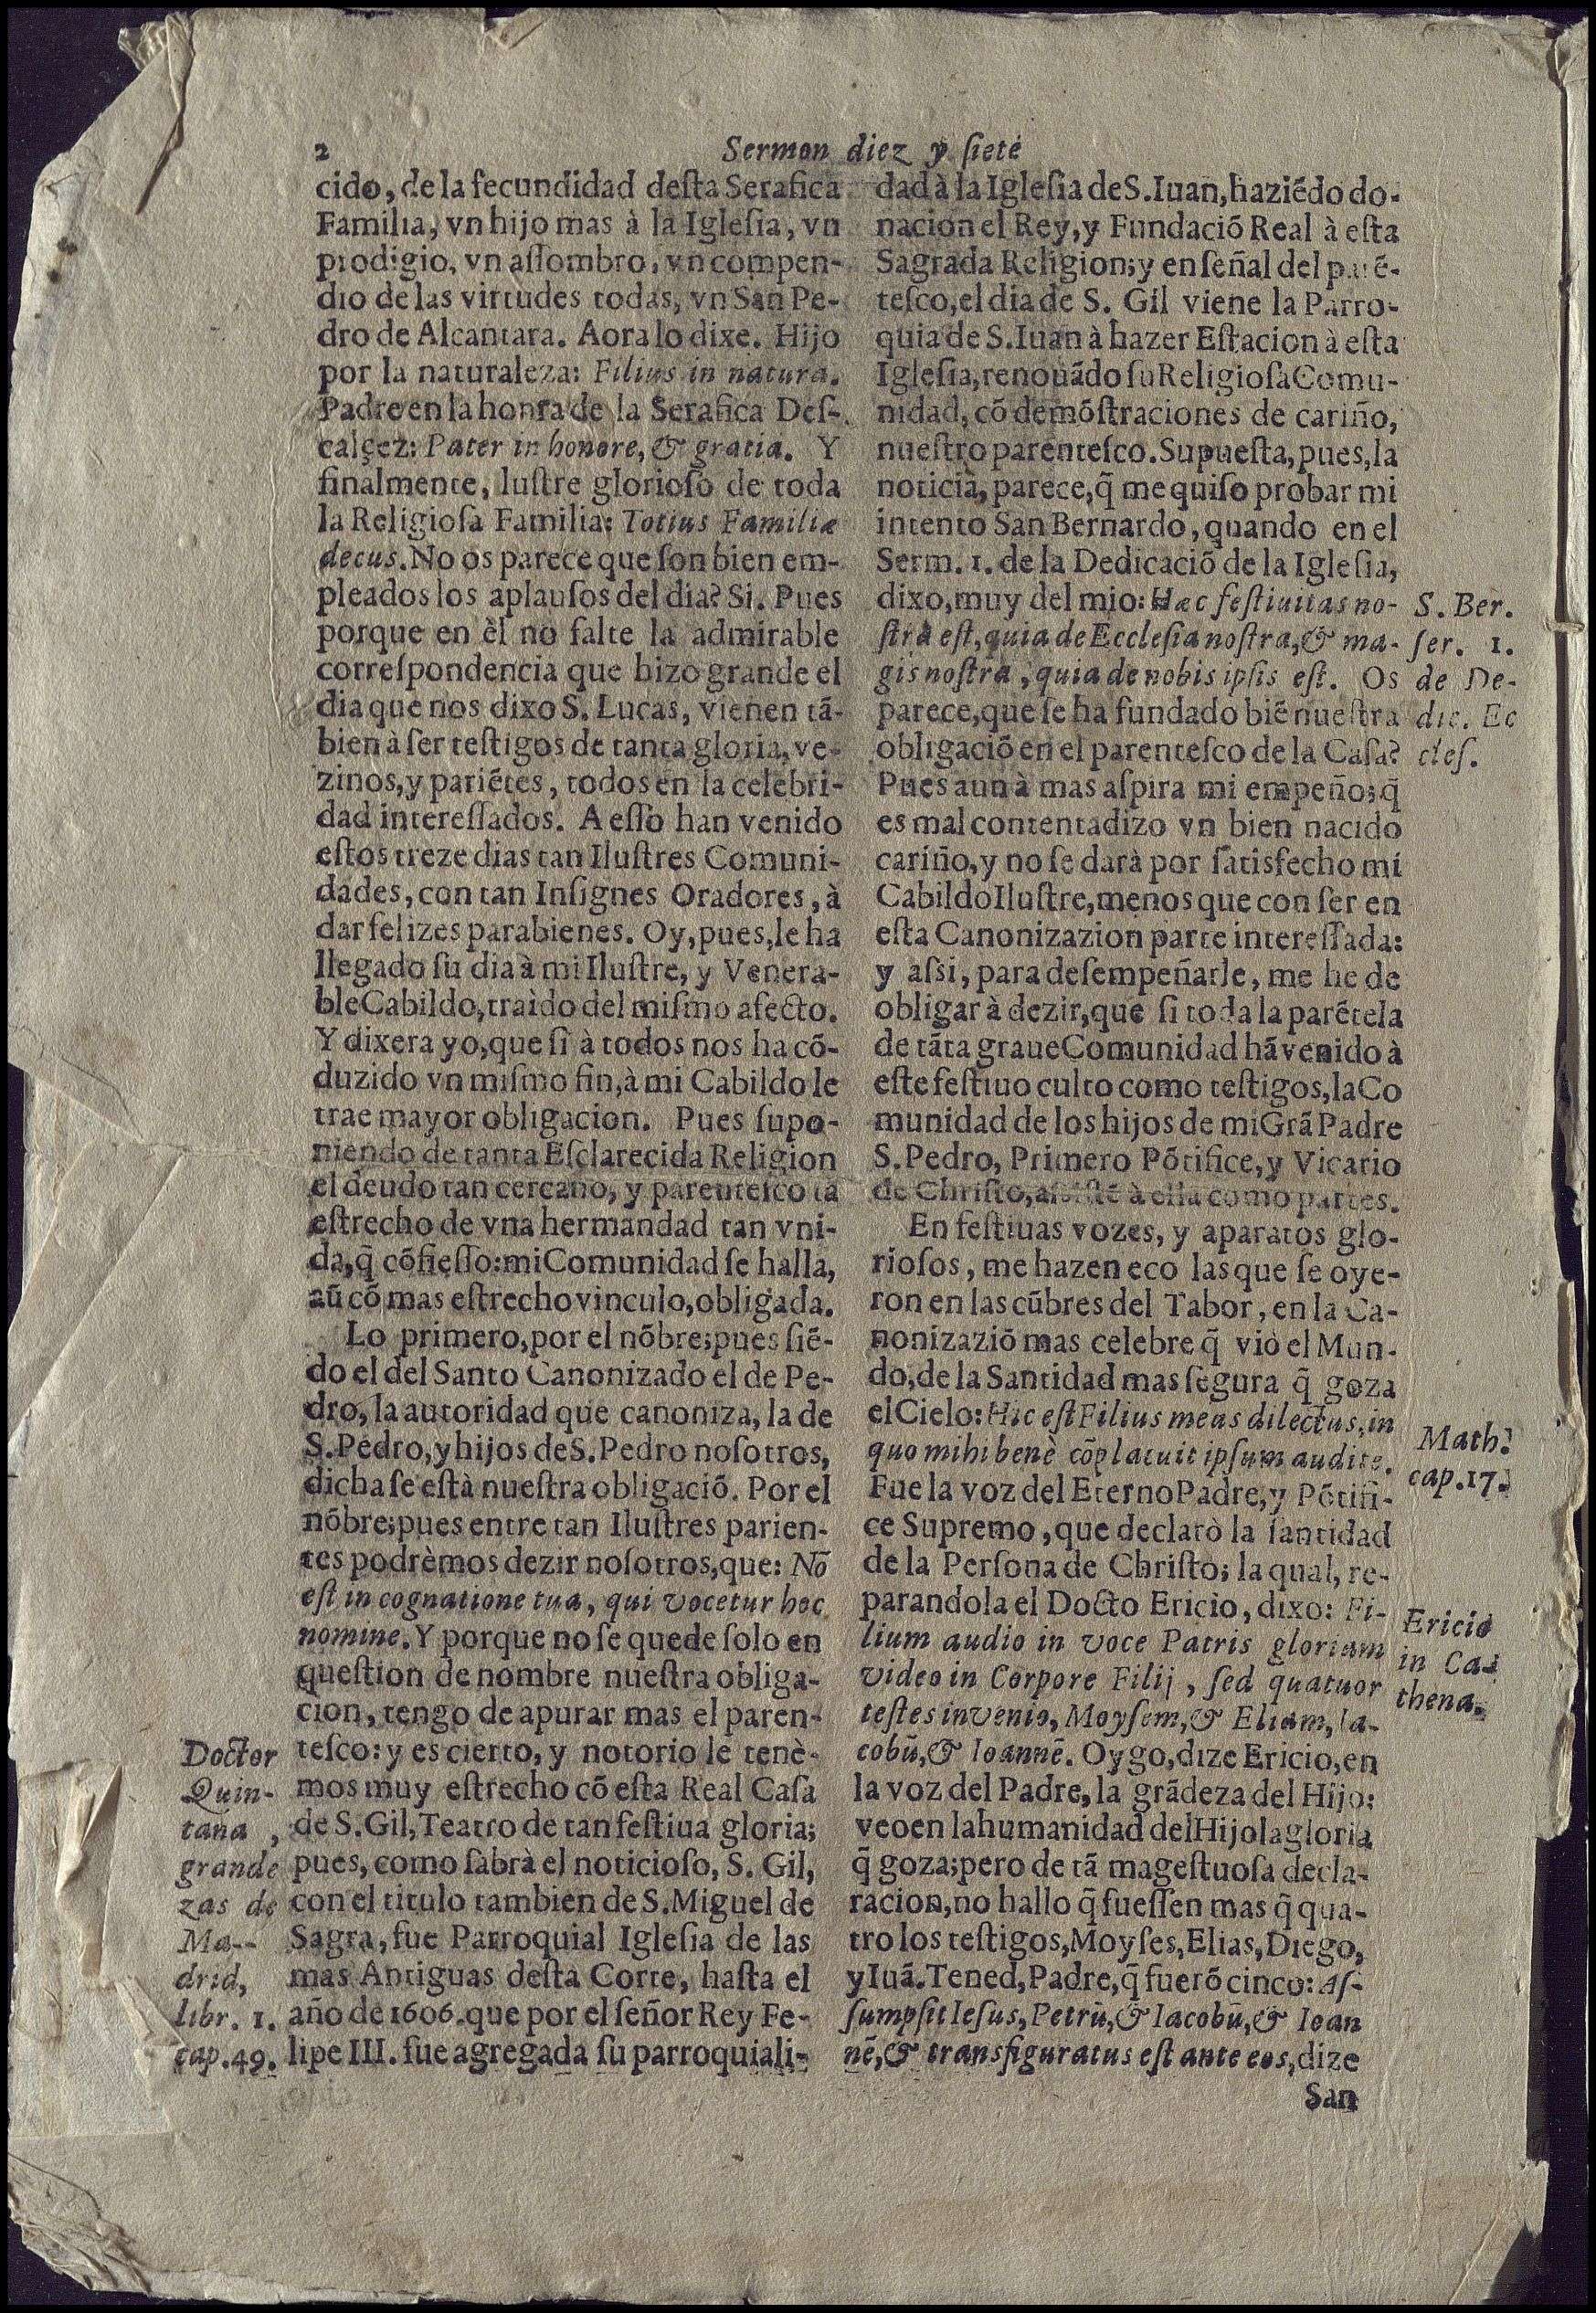 2
Sermon diez y siete
cido, de la fecundidad desta Serafica
Familia, vn hijo mas à la Iglesia, vn
prodigio, vn assombro, vn compen-
dio de las virtudes todas, vn San Pe-
dro de Alcantara. Aora lo dixe. Hijo
por la naturaleza: Filius in natura.
Padre en la honra de la Serafica Des-
calçez: Pater in honore, & gratia. Y
finalmente, lustre glorioso de toda
la Religiosa Familia: Totius Familiæ
decus. No os parece que son bien em-
pleados los aplausos del dia? Si. Pues
porque en èl no falte la admirable
correspondencia que hizo grande el
dia que nos dixo S. Lucas, vienen tã-
bien à ser testigos de tanta gloria, ve-
zinos, y pariẽtes, todos en la celebri-
dad interessados. A esso han venido
estos treze dias tan Ilustres Comuni-
dades, con tan Insignes Oradores, à
dar felizes parabienes. Oy, pues, le ha
llegado su dia à mi Ilustre, y Venera-
ble Cabildo, traìdo del mismo afecto.
Y dixera yo, que si à todos nos ha cõ-
duzido vn mismo fin, à mi Cabildo le
trae mayor obligacion. Pues supo-
niendo de tanta Esclarecida Religion
el deudo tan cercano, y parentesco tã
estrecho de vna hermandad tan vni-
da, q̃ cõfiesso: mi Comunidad se halla,
aũ cõ mas estrecho vinculo, obligada.
Lo primero, por el nõbre; pues siẽ-
do el del Santo Canonizado el de Pe-
dro, la autoridad que canoniza, la de
S. Pedro, y hijos de S. Pedro nosotros,
dicha se està nuestra obligaciõ. Por el
nõbre; pues entre tan Ilustres parien-
tes podrèmos dezir nosotros, que: Nõ
est in cognatione tua, qui vocetur hoc
nomine. Y porque no se quede solo en
question de nombre nuestra obliga-
cion, tengo de apurar mas el paren-
tesco: y es cierto, y notorio le tenè-
mos muy estrecho cõ esta Real Casa
de S. Gil, Teatro de tan festiua gloria;
pues, como sabrà el noticioso, S. Gil,
con el titulo tambien de S. Miguel de
Sagra, fue Parroquial Iglesia de las
mas Antiguas desta Corte, hasta el
año de 1606. que por el señor Rey Fe-
lipe III. fue agregada su parroquiali-
Doctor
Quin-
tana,
grande
zas de
Ma--
drid,
libr. 1.
cap. 49.
dad à la Iglesia de S. Iuan, haziẽdo do-
nacion el Rey, y Fundaciõ Real à esta
Sagrada Religion; y en señal del parẽ-
tesco, el dia de S. Gil viene la Parro-
quia de S. Iuan à hazer Estacion à esta
Iglesia, renouãdo su Religiosa Comu-
nidad, cõ demõstraciones de cariño,
nuestro parentesco. Supuesta, pues, la
noticia, parece, q̃ me quiso probar mi
intento San Bernardo, quando en el
Serm. 1. de la Dedicaciõ de la Iglesia,
dixo, muy del mio: Hæc festiuitas no-
stra est, quia de Ecclesia nostra, & ma-
gis nostra, quia de nobis ipsis est. Os
parece, que se ha fundado biẽ nuestra
obligaciõ en el parentesco de la Casa?
Pues aun à mas aspira mi empeño; q̃
es mal contentadizo vn bien nacido
cariño, y no se darà por satisfecho mi
Cabildo Ilustre, menos que con ser en
esta Canonizazion parte interessada:
y assi, para desempeñarle, me he de
obligar à dezir, que si toda la parẽtela
de tãta graue Comunidad hã venido à
este festiuo culto como testigos, la Co
munidad de los hijos de mi Grã Padre
S. Pedro, Primero Põtifice, y Vicario
de Christo, assistẽ à ella como partes.
En festiuas vozes, y aparatos glo-
riosos, me hazen eco las que se oye-
ron en las cũbres del Tabor, en la Ca-
nonizaziõ mas celebre q̃ viò el Mun-
do, de la Santidad mas segura q̃ goza
el Cielo: Hic est Filius meus dilectus, in
quo mihi benè cõplacuit ipsum audite.
Fue la voz del Eterno Padre, y Põtifi-
ce Supremo, que declarò la santidad
de la Persona de Christo; la qual, re-
parandola el Docto Ericio, dixo: Fi-
lium audio in voce Patris gloriam
video in Corpore Filij, sed quatuor
testes invenio, Moysem, & Eliam, Ia-
cobũ, & Ioannẽ. Oygo, dize Ericio, en
la voz del Padre, la grãdeza del Hijo:
veo en la humanidad del Hijo la gloria
q̃ goza; pero de tã magestuosa decla-
racion, no hallo q̃ fuessen mas q̃ qua-
tro los testigos, Moyses, Elias, Diego,
y Iuã. Tened, Padre, q̃ fuerõ cinco: As-
sumpsit Iesus, Petrũ, & Iacobũ, & Ioan
nẽ, & transfiguratus est ante eos, dize
San
S. Ber.
ser. 1.
de De-
dic. Ec
cles.
Math.
cap. 17.
Ericio
in Ca-
thena.